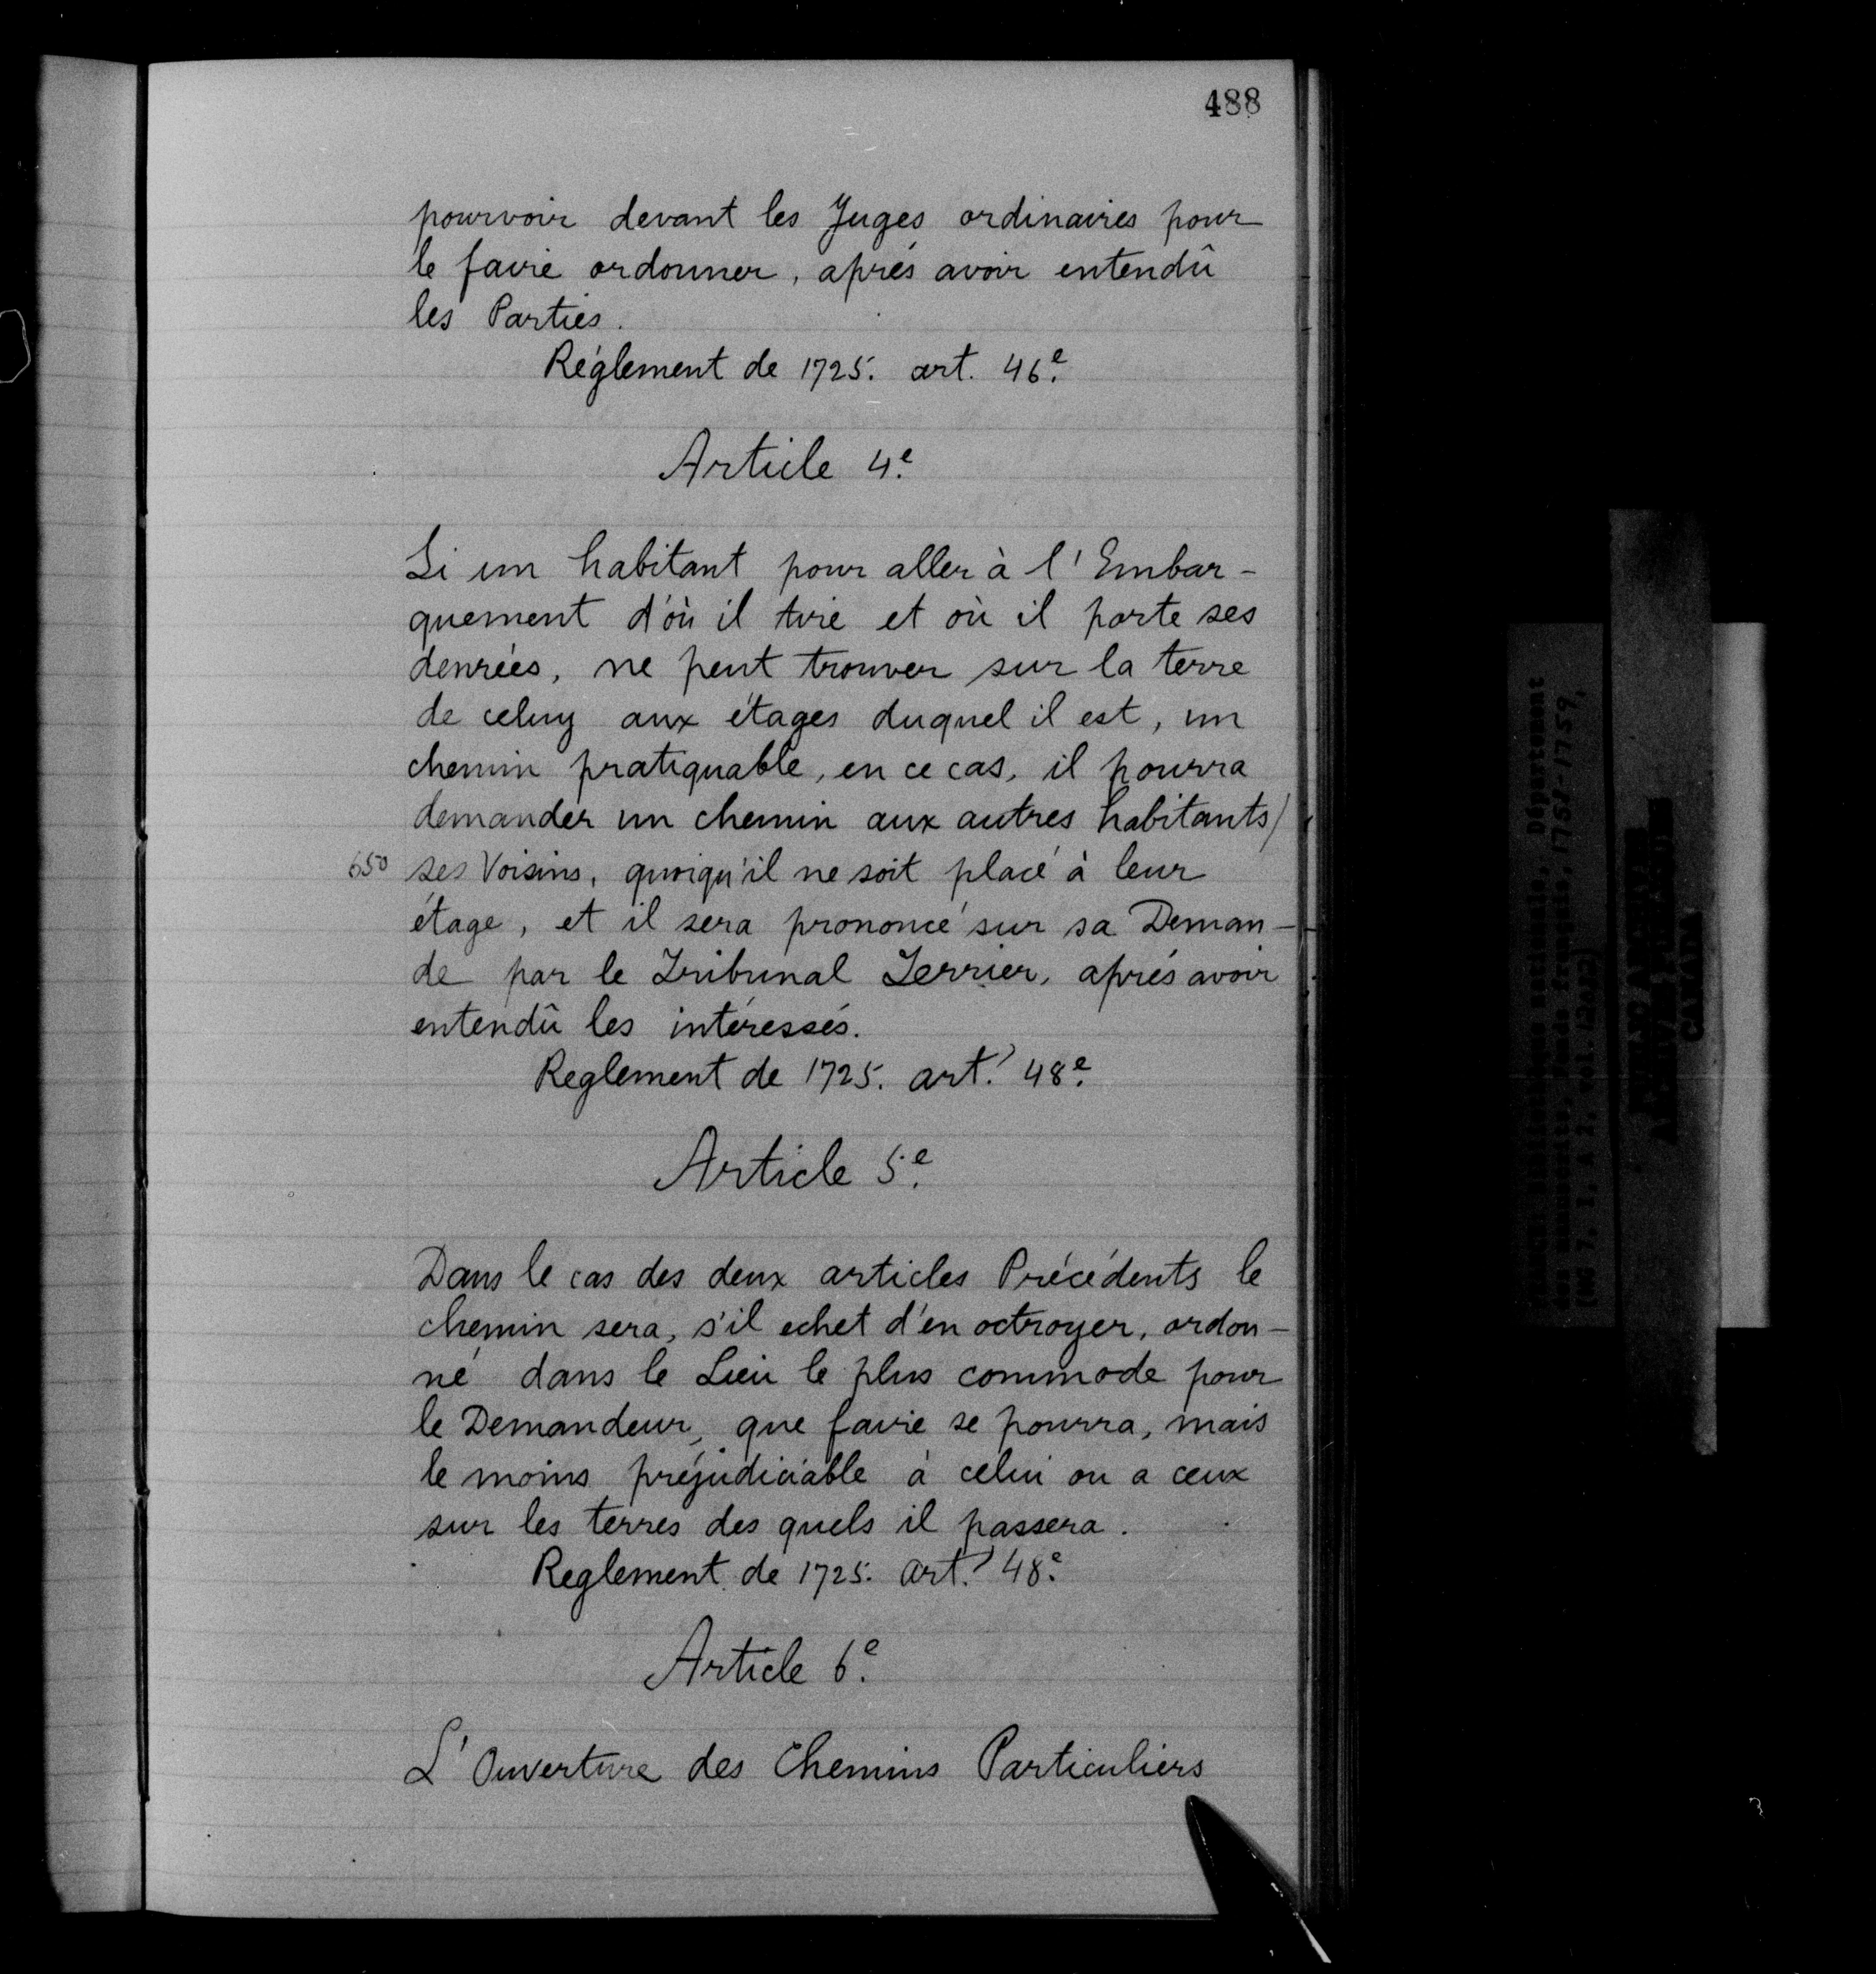 488
pourvoir devant les Juges ordinaires pour
le faire ordonner, aprés avoir entendû
les Parties.
Réglement de 1725. art. 46e.
Article 4e.
Si un habitant pour aller à l'Embar-
quement d'où il tire et où il porte ses
denrées, ne peut trouver sur la terre
de celuy aux étages duquel il est, un
chemin pratiquable, en ce cas, il pourra
demander un chemin aux autres habitants/
650 ses Voisins, quoiqu'il ne soit placé à leur
étage, et il sera prononcé sur sa Deman-
de par le Tribunal Terrier, aprés avoir
entendû les intéressés.
Reglement de 1725. art. 48e.
Article 5e.
Dans le cas des deux articles Précédents le
chemin sera, s'il echet d'en octroyer, ordon-
né dans le Lieu le plus commode pour
le Demandeur, que faire se pourra, mais
le moins préjudiciable à celui ou a ceux
sur les terres des quels il passera.
Reglement de 1725. art. 48e.
Article 6e.
L'Ouverture des Chemins Particuliers
Département
1751-1759,
CANADA